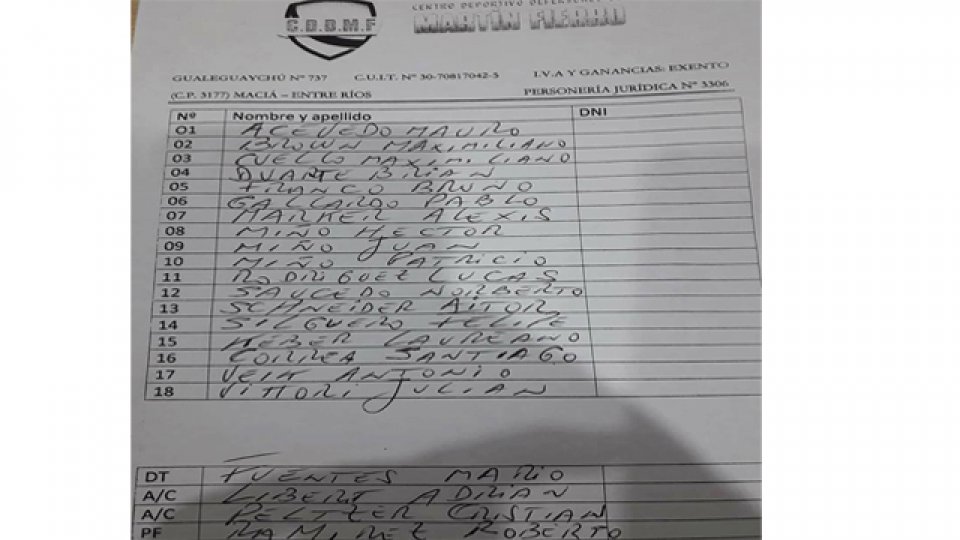 CENTRO DEPORTIVO DEFENSORES
C.D.D.M.F
MARTIN FIERRO
GUALEGUAYCHÚ Nº 737 C.U.I.T. Nº 30-70817042-5 I.V.A Y GANANCIAS: EXENTO
(C.P. 3177) MACIÁ – ENTRE RÍOS PERSONERÍA JURÍDICA Nº 3306
Nº Nombre y apellido DNI
01 ACEVEDO MAURO
02 BROWN MAXIMILIANO
03 CUELLO MAXIMILIANO
04 DUARTE BRIAN
05 FRANCO BRUNO
06 GALLARDO PABLO
07 MARKER ALEXIS
08 MIÑO HECTOR
09 MIÑO JUAN
10 MIÑO PATRICIO
11 RODRIGUEZ LUCAS
12 SAUCEDO NORBERTO
13 SCHNEIDER AITOR
14 SILGUERO FELIPE
15 HEBER LAUREANO
16 CORREA SANTIAGO
17 VEIK ANTONIO
18 VITTORI JULIAN
DT FUENTES MARIO
A/C LIBERT ADRIAN
A/C PELTZER CRISTIAN
PF RAMIREZ ROBERTO